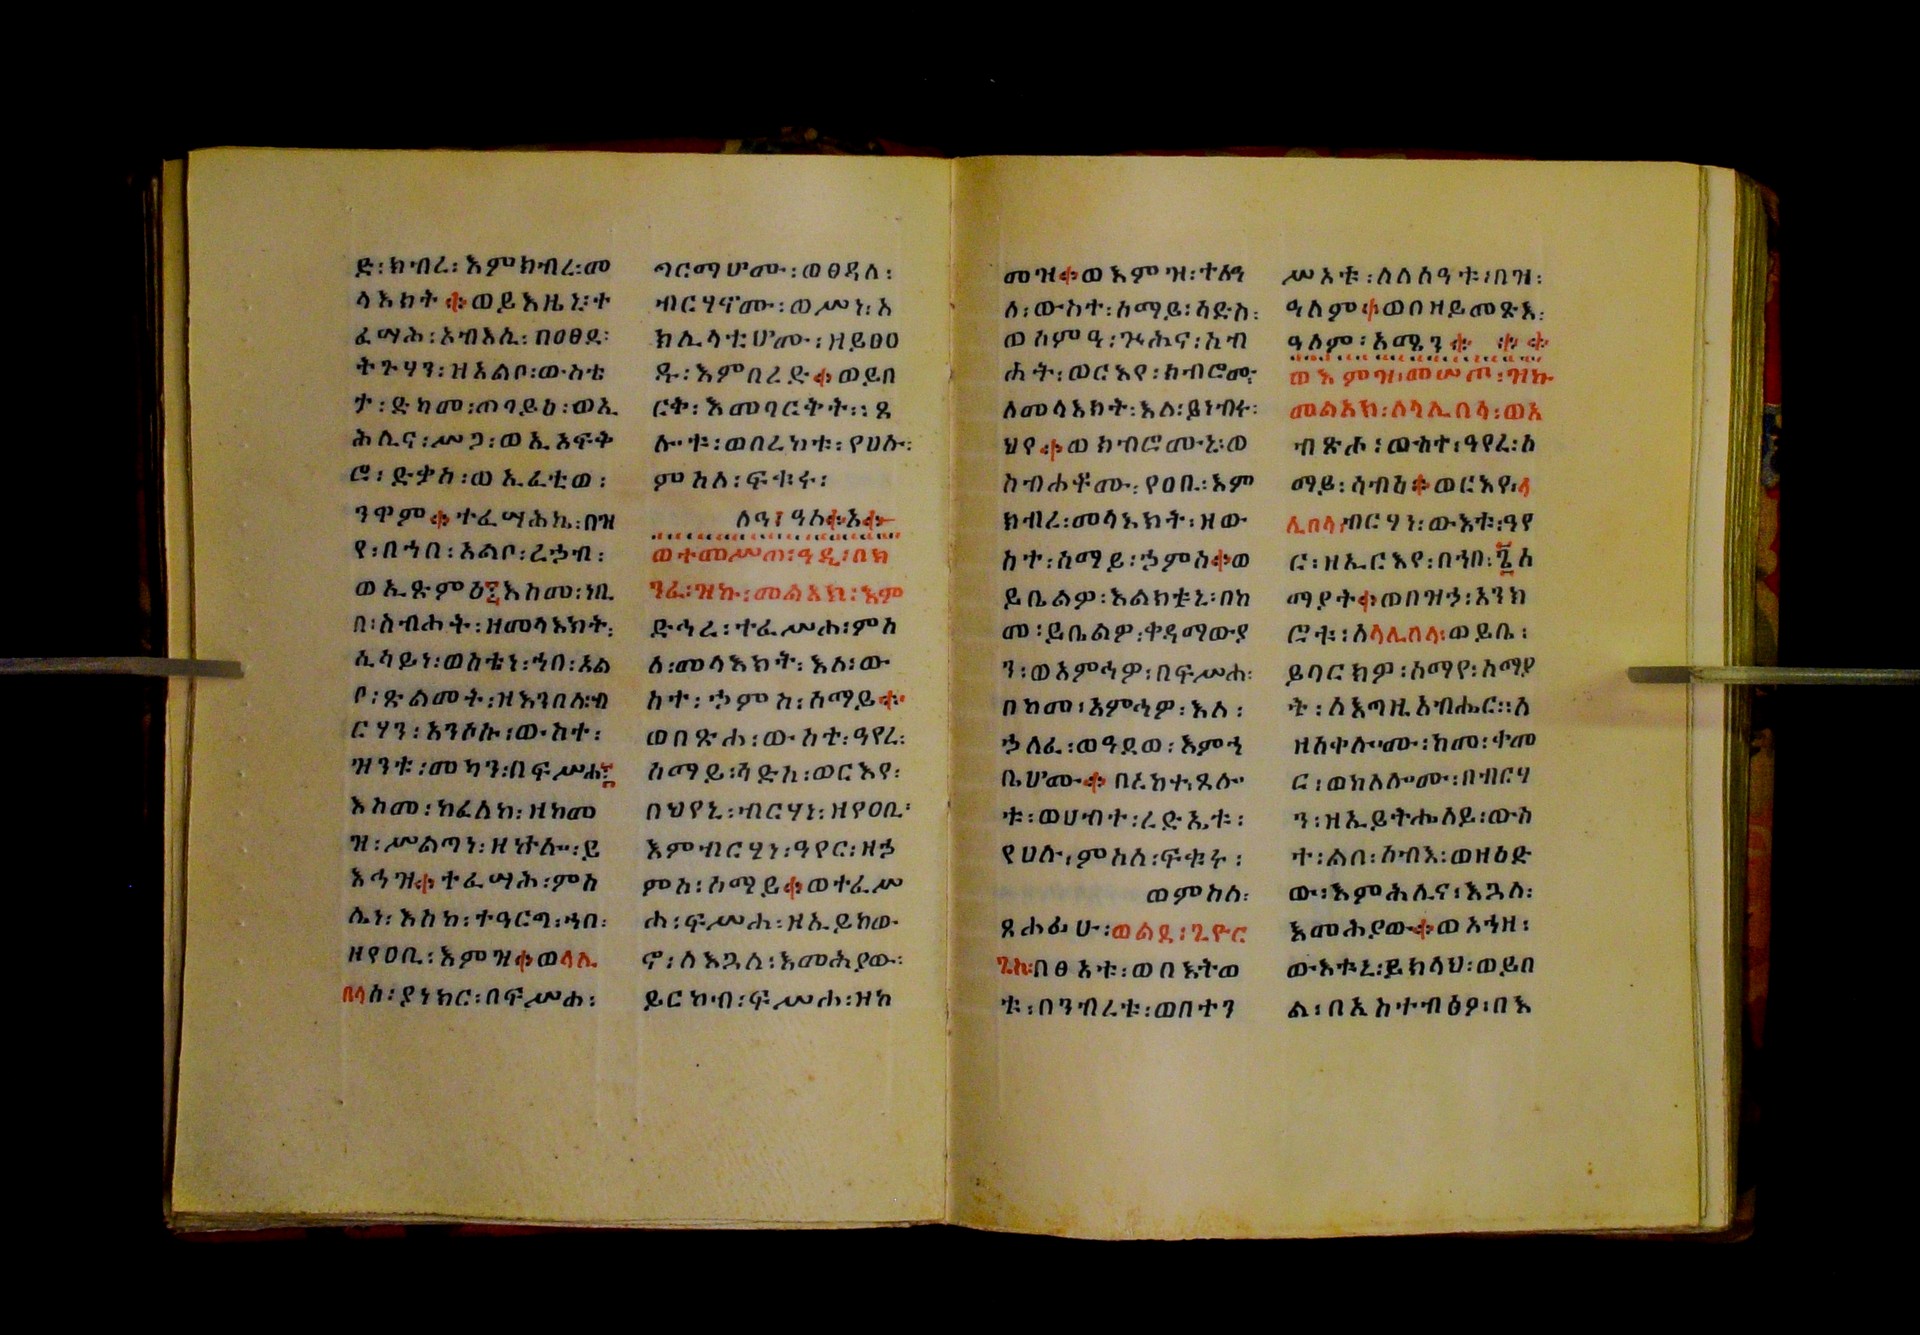 ድ፡ክብረ፡እምክብረ፡መ
ላእክት፨ወይእዜኒ፡ተ
ፈሣሕ፡አብእሲ፡በዐፀደ፡
ትጉሃን፡ዝአልቦ፡ውስቴ
ታ፡ድካመ፡ጠባይዕ፡ወኢ
ሕሊና፡ሥጋ፡ወኢአፍቅ
ሮ፡ድቃስ፡ወኢፈቲው፡
ንዋም፨ተፈሣሕኬ፡በዝ
የ፡በኀበ፡አልቦ፡ረኃብ፡
ወኢጽምዕ፤እስመ፡ነቢ
በ፡ስብሐት፡ዘመላእክት፡
ኢሳይነ፡ወስቴነ፡ኀበ፡አል
ቦ፡ጽልመት፡ዝእንበለ፡ብ
ርሃን፡አንሶሱ፡ውስተ፡
ዝንቱ፡መካን፡በፍሥሐ፤
እስመ፡ከፈለከ፡ዘከመ
ዝ፡ሥልጣነ፡ዘነተሉ፡ይ
እኅዝ፨ተፈሣሕ፡ምስ
ሌነ፡እስከ፡ተዓርግ፡ኀበ፡
ዘየዐቢ፡እምዝ፨ወላሊ
በላስ፡ያነክር፡በፍሥሐ፡
ግርማሆሙ፡ወፀዳለ፡
ብርሃኖሙ፡ወሥነ፡አ
ክሊላቲሆሙ፡ዘይፀዐ
ዱ፡እምበረድ፨ወይበ
ርቅ፡እመባርቅት፡፡ጸ
ሎቱ፡ወበረከቱ፡የሀሉ፡
ምስለ፡ፍቁሩ፡
ለዓ፤ዓለ፨እ፨
ወተመሥጠ፡ዓዲ፡በክ
ንፈ፡ዝኩ፡መልአክ፡እም
ድኅረ፡ተፈሥሐ፡ምስ
ለ፡መላእክት፡እለ፡ው
ስተ፡ኃምስ፡ሰማይ፨
ወበጽሐ፡ውስተ፡ዓየረ፡
ሰማይ፡ሳድስ፡ወርእየ፡
በህየኒ፡ብርሃነ፡ዘየዐቢ፡
እምብርሃነ፡ዓየር፡ዘኃ
ምስ፡ሰማይ፨ወተፈሥ
ሐ፡ፍሥሐ፡ዘኢይከው
ኖ፡ለእጓለ፡እመሕያው፡
ይርከብ፡ፍሥሐ፡ዘከ
መዝ፨ወእምዝ፡ተለዓ
ለ፡ውስተ፡ሰማይ፡ሳድስ፡
ወሰምዓ፡ጉሕና፡ስብ
ሐት፡ወርእየ፡ክብሮሙ፡
ለመላእክት፡እለ፡ይነብሩ፡
ህየ፨ወክብሮሙኒ፡ወ
ስብሐቶሙ፡የዐቢ፡እም
ክብረ፡መላእክት፡ዘው
ስተ፡ሰማይ፡ኃምስ፨ወ
ይቤልዎ፡እልክቱኒ፡በከ
መ፡ይቤልዎ፡ቀዳማውያ
ን፡ወአምኅዎ፡በፍሥሐ፡
በከመ፡አምኅዎ፡እለ፡
ኃለፈ፡ወዓደወ፡እምኀ
ቤሆሙ፨በረከተ፡ጸሎ
ቱ፡ወሀብተ፡ረድኤቱ፡
የሀሉ፡ምስለ፡ፍቁሩ፡
ወምስለ፡
ጸሐፊሁ፡ወልደ፡ጊዮር
ጊስ፡በፀአቱ፡ወበእትወ
ቱ፡በንብረቱ፡ወበተን
ሥአቱ፡ለለሰዓቱ፡በዝ፡
ዓለም፨ወበዘይመጽእ፡
ዓለም፡አሜን፨ ፨፨
ወእምዝ፡መሠጦ፡ዝኩ
መልአክ፡ለላሊበላ፡ወአ
ብጽሖ፡ውስተ፡ዓየረ፡ሰ
ማይ፡ሳብዕ፨ወርእየ፡ላ
ሊበላ፡ብርሃነ፡ውእቱ፡ዓየ
ር፡ዘኢርእየ፡በኀበ፡፮ሰ
ማያት፨ወበዝኃ፡አንክ
ሮቱ፡ለላሊበላ፡ወይቤ፡
ይባርክዎ፡ሰማየ፡ሰማያ
ት፡ለእግዚአብሔር፡፡ለ
ዘለቀሎሙ፡ከመ፡ቀመ
ር፡ወክለሎሙ፡በብርሃ
ን፡ዘኢይትሔለይ፡ውስ
ተ፡ልበ፡ሰብእ፡ወዘዕድ
ው፡እምሕሊና፡እጓለ፡
እመሕያው፨ወአኀዘ፡
ውእቱኒ፡ይክላህ፡ወይበ
ል፡በኢስተብፅዖ፡በእ